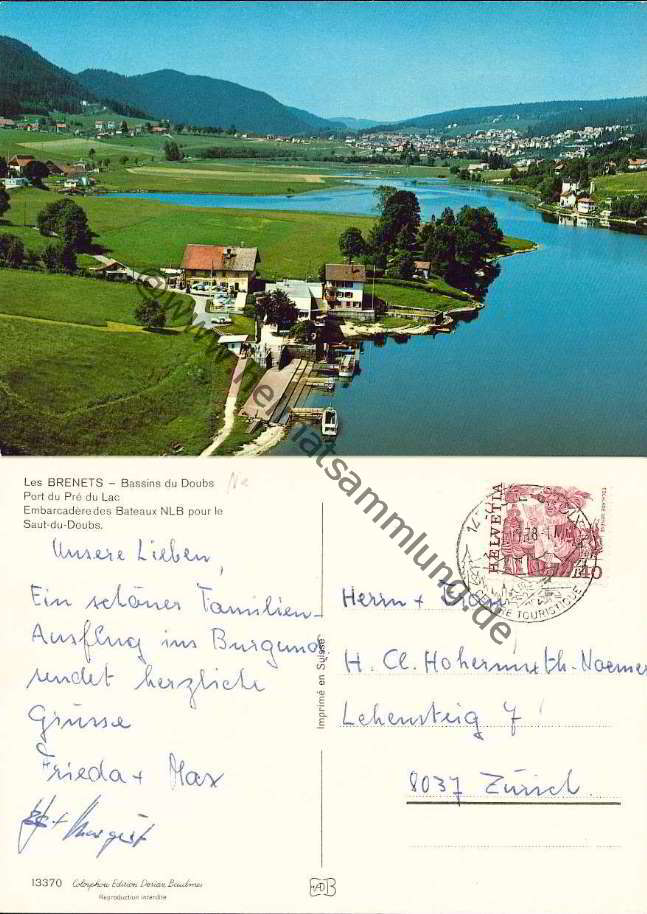 © www.heimatsammlung.de
Les BRENETS – Bassins du Doubs
Port du Pré du Lac
Embarcadère des Bateaux NLB pour le
Saut-du-Doubs.
Unsere Lieben,
Ein schöner Familien-
Ausflug ins Burgund
sendet herzliche
Grüsse
Frieda + Max
13370 Colorphoto Edition Dorian Baulmes
Reproduction interdite
Imprimé en Suisse
HELVETIA
TOURISTIQUE
Herrn + Frau
H. Cl. Hohermuth-Noemer
Lehensteig 7
8037 Zürich.